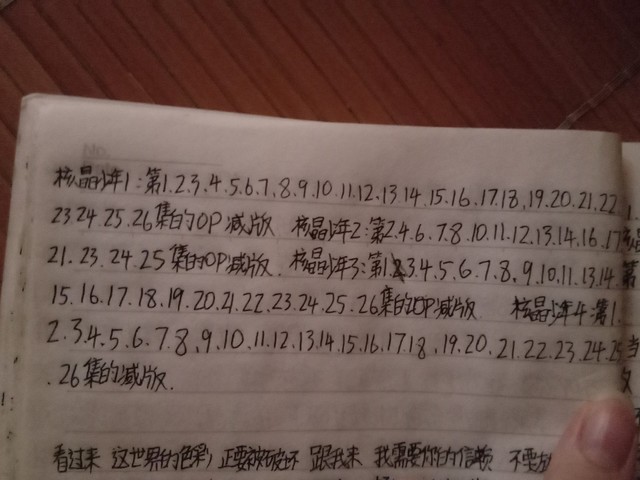 核晶少年1:第1.2.3.4.5.6.7.8.9.10.11.12.13.14.15.16.17.18.19.20.21.22
23.24.25.26集的OP减版 核晶少年2:第2.4.6.7.8.10.11.12.13.14.16.17
21.23.24.25集的OP减版. 核晶少年3:第1.3.4.5.6.7.8.9.10.11.13.14.
15.16.17.18.19.20.21.22.23.24.25.26集的OP减版 核晶少年4:第1.
2.3.4.5.6.7.8.9.10.11.12.13.14.15.16.17.18.19.20.21.22.23.24.25
.26集的减版.
看过来 这世界的色彩 正要被破坏 跟我来 我需要你的信赖 不要